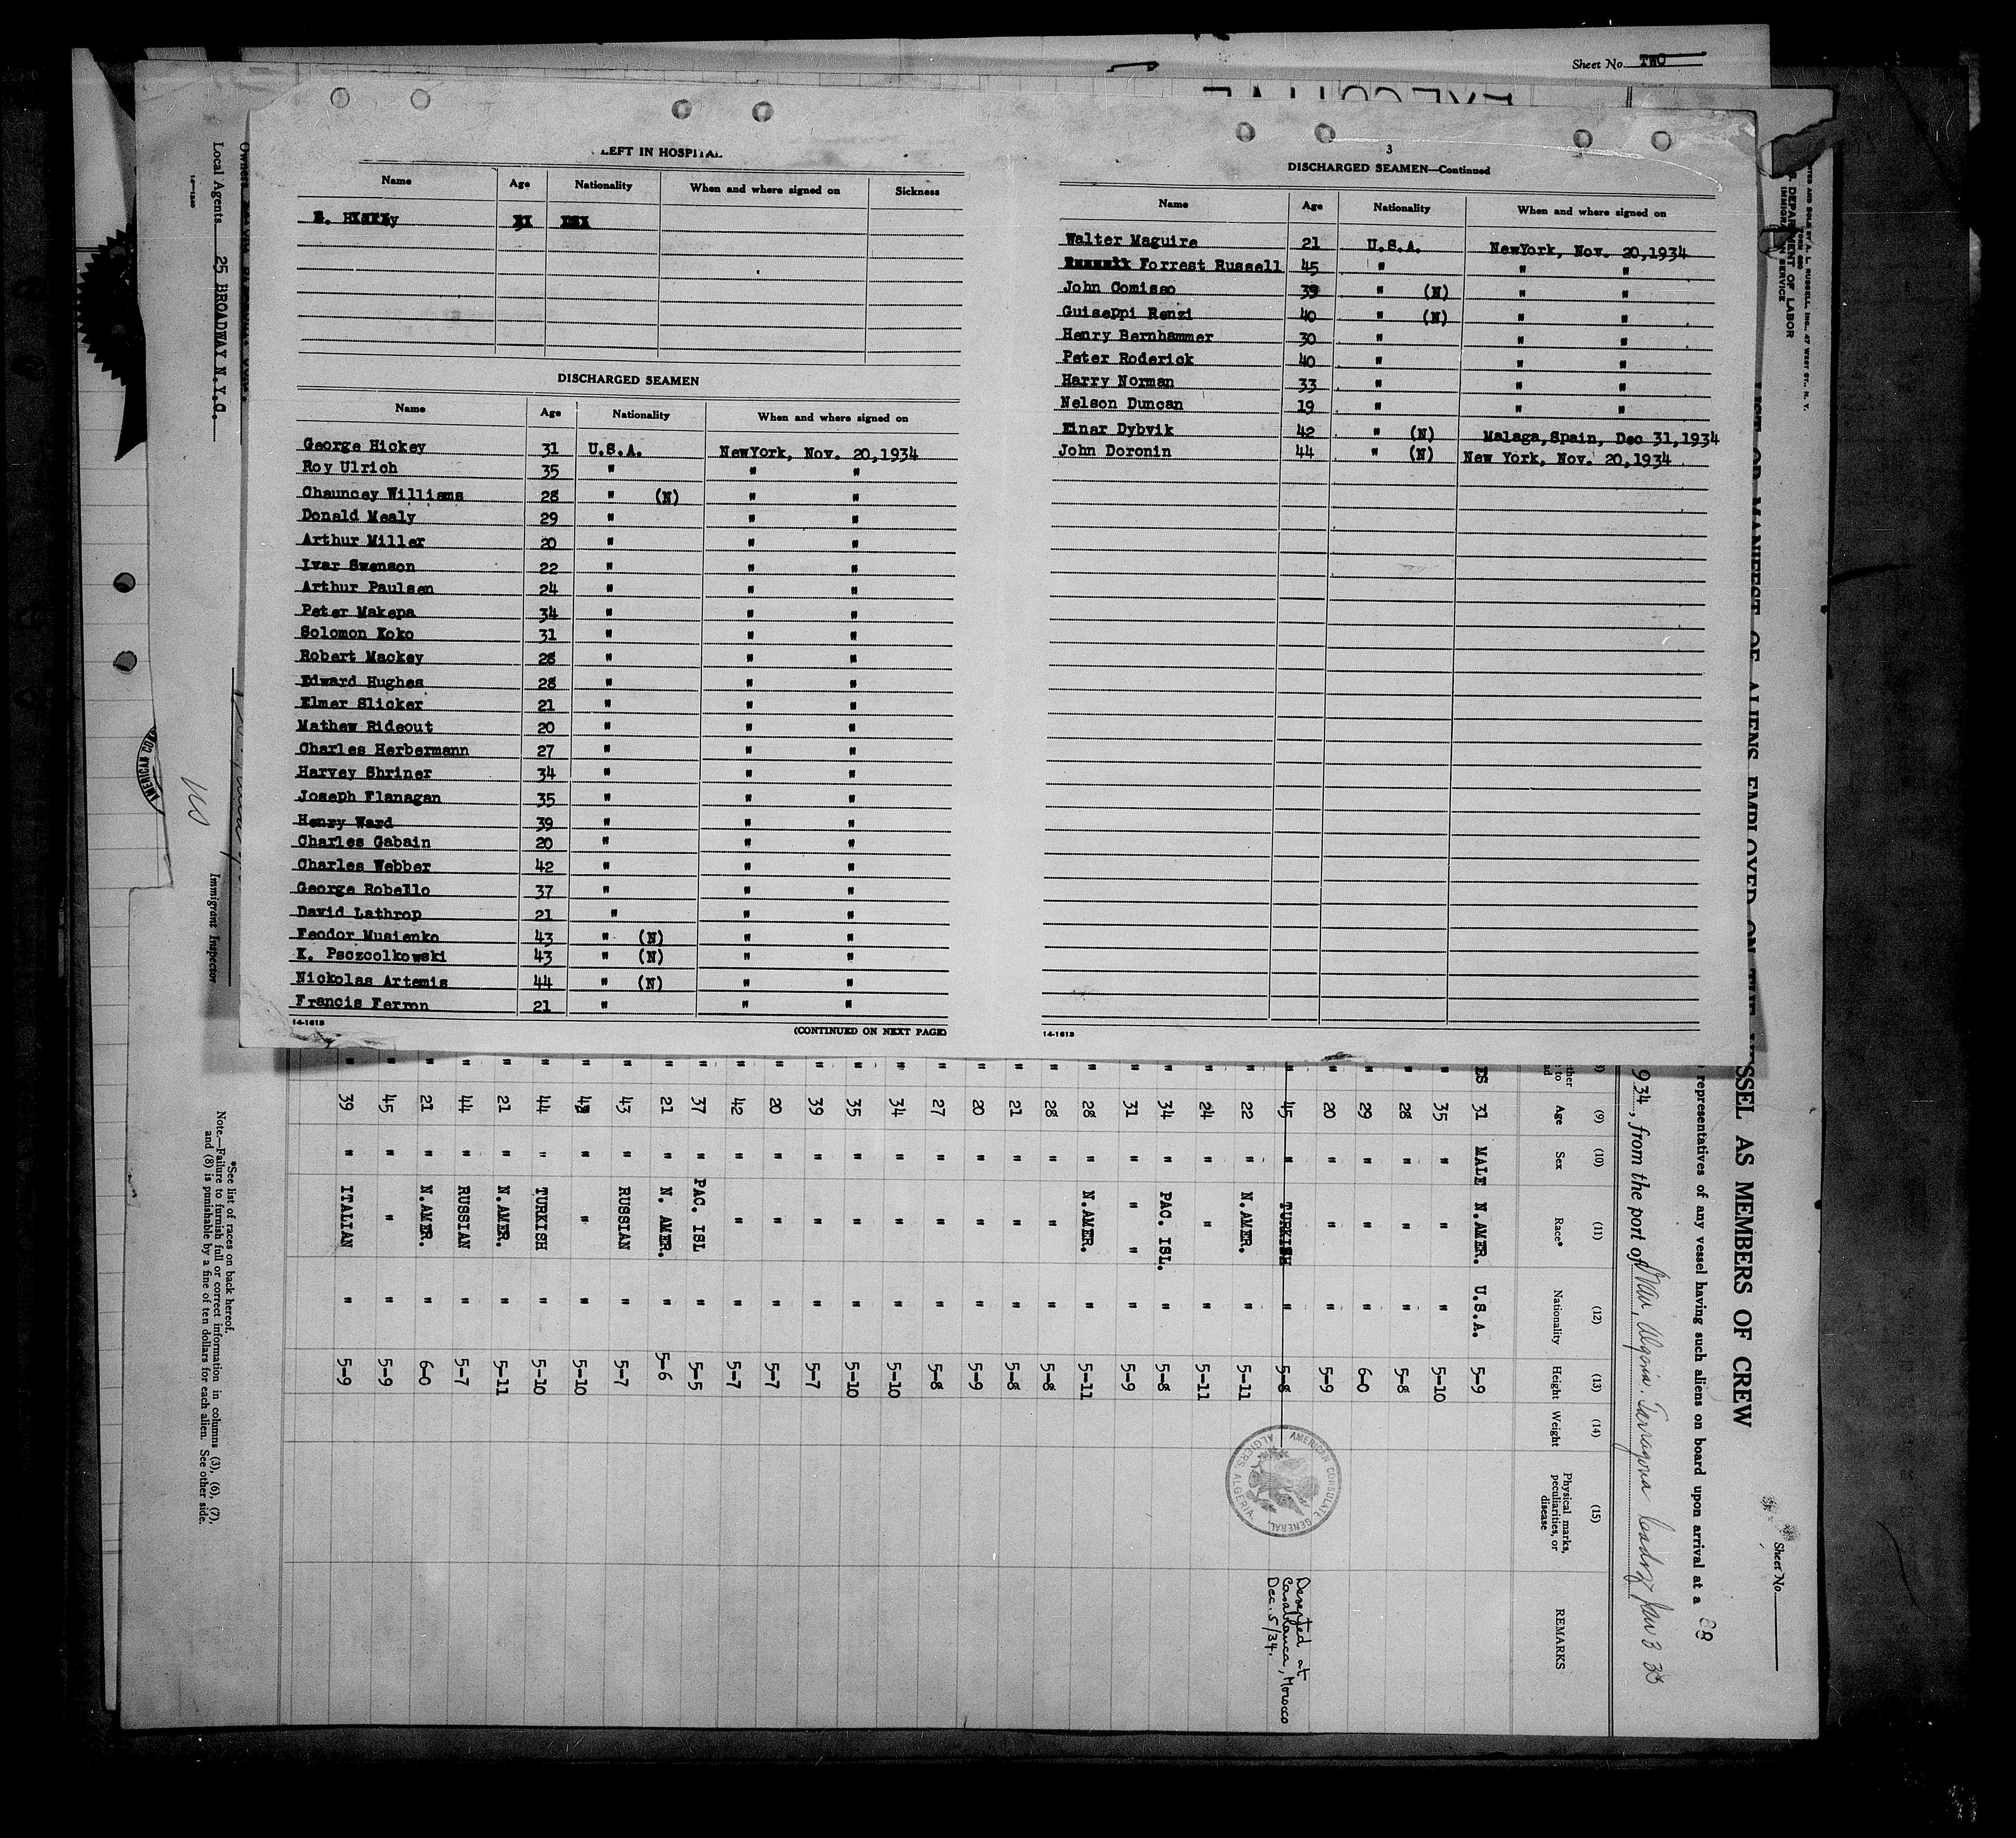 Sheet No. TWO
LEFT IN HOSPITAL
Name Age Nationality When and where signed on Sickness
DISCHARGED SEAMEN
Name Age Nationality When and where signed on
George Hickey 31 U.S.A. NewYork, Nov. 20,1934
Roy Ulrich 35 " " "
Chauncey Williams 28 " (N) " "
Donald Mealy 29 " " "
Arthur Miller 20 " " "
Ivar Swenson 22 " " "
Arthur Paulsen 24 " " "
Peter Makepa 34 " " "
Solomon Koko 31 " " "
Robert Mackey 28 " " "
Edward Hughes 28 " " "
Elmer Slicker 21 " " "
Mathew Rideout 20 " " "
Charles Herbermann 27 " " "
Harvey Shriner 34 " " "
Joseph Flanagan 35 " " "
Henry Ward 39 " " "
Charles Gabain 20 " " "
Charles Webber 42 " " "
George Robello 37 " " "
David Lathrop 21 " " "
Feodor Musienko 43 " (N) " "
K. Psozcolkowski 43 " (N) " "
Nickolas Artemis 44 " (N) " "
Francis Ferron 21 " " "
14-1613 (CONTINUED ON NEXT PAGE)
3
DISCHARGED SEAMEN—Continued
Name Age Nationality When and where signed on
Walter Maguire 21 U.S.A. NewYork, Nov. 20,1934
Forrest Russell 45 " " "
John Comisso 39 " (N) " "
Guiseppi Renzi 40 " (N) " "
Henry Bernhammer 30 " " "
Peter Roderick 40 " " "
Harry Norman 33 " " "
Nelson Duncan 19 " " "
Einar Dybvik 42 " (N) Malaga,Spain, Dec 31,1934
John Doronin 44 " (N) New York, Nov. 20,1934
14-1613
Sheet No.
SSEL AS MEMBERS OF CREW
representatives of any vessel having such aliens on board upon arrival at a
934, from the port of
(9) (10) (11) (12) (13) (14) (15)
Age Sex Race* Nationality Height Weight Physical marks, peculiarities, or disease REMARKS
ES 31 MALE N.AMER. U.S.A. 5-9
" 35 " " " 5-10
" 28 " " " 5-8
" 29 " " " 6-0
" 20 " " " 5-9
" 45 " TURKISH " 5-8 Deserted at Casablanca, Morocco Dec. 5/34.
" 22 " N.AMER. " 5-11
" 24 " " " 5-11
" 34 " PAC. ISL. " 5-8
" 31 " " " 5-9
" 28 " N.AMER. " 5-11
" 28 " " " 5-8
" 21 " " " 5-8
" 20 " " " 5-9
" 27 " " " 5-8
" 34 " " " 5-10
" 35 " " " 5-10
" 39 " " " 5-7
" 20 " " " 5-7
" 42 " " " 5-7
" 37 " PAC. ISL " 5-5
" 21 " N. AMER. " 5-6
" 43 " RUSSIAN " 5-7
" 43 " " " 5-10
" 44 " TURKISH " 5-10
" 21 " N.AMER. " 5-11
" 44 " RUSSIAN " 5-7
" 21 " N.AMER. " 6-0
" 45 " " " 5-9
" 39 " ITALIAN " 5-9
AMERICAN CONSULATE GENERAL, ALGIERS, ALGERIA
*See list of races on back hereof.
Note.—Failure to furnish full or correct information in columns (3), (6), (7),
and (8) is punishable by a fine of ten dollars for each alien. See other side.
Immigrant Inspector
Local Agents 25 BROADWAY N.Y.C.
Owners
DEPARTMENT OF LABOR